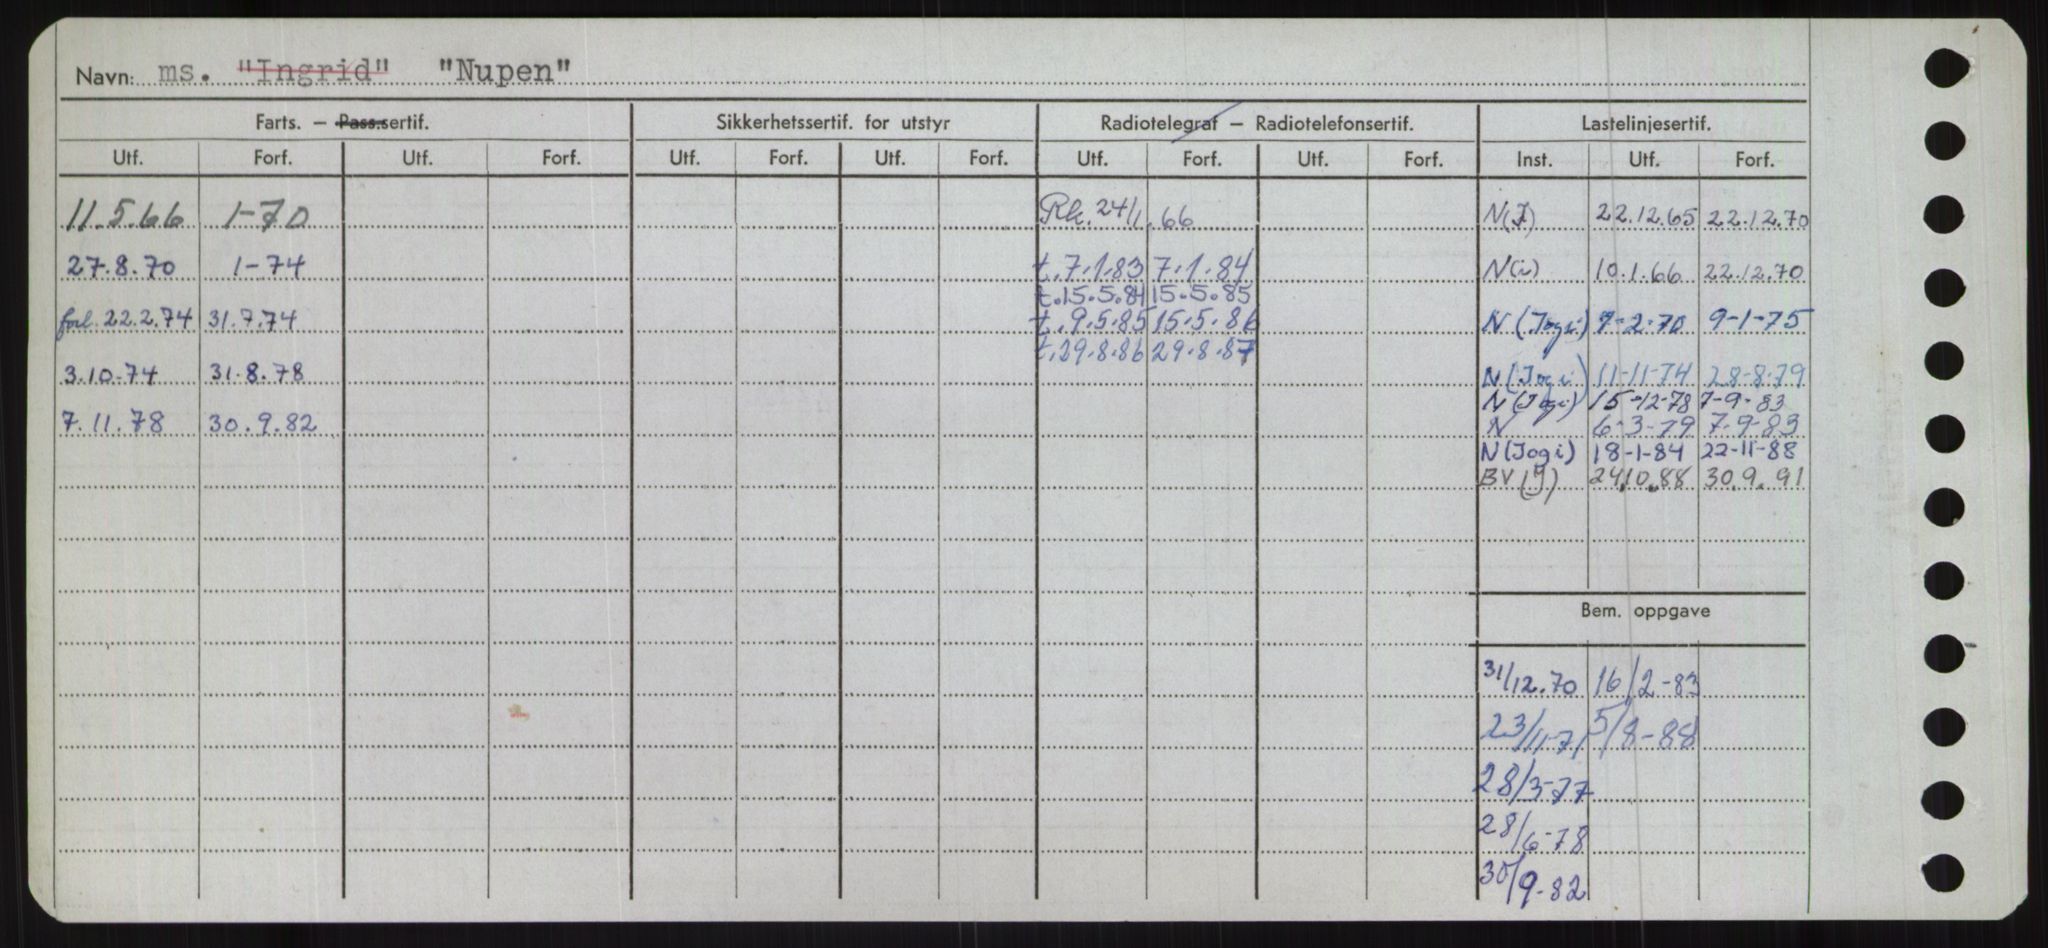 Navn: ms. "Ingrid" "Nupen"
Farts. — Pass.sertif. Sikkerhetssertif. for utstyr Radiotelegraf — Radiotelefonsertif. Lastelinjesertif.
Utf. Forf. Utf. Forf. Utf. Forf. Utf. Forf. Utf. Forf. Utf. Forf. Inst. Utf. Forf.
11.5.66 1-70 Rk. 24/1.66 N(J) 22.12.65 22.12.70
27.8.70 1-74 t.7.1.83 7.1.84 N(i) 10.1.66 22.12.70
t.15.5.84 15.5.85
forl. 22.2.74 31.7.74 t.9.5.85 15.5.86 N (Jogi) 9-2-70 9-1-75
t.29.8.86 29.8.87
3.10.74 31.8.78 N (Jogi) 11-11-74 28-8-79
N (Jogi) 15-12-78 7-9-83
7.11.78 30.9.82 N 6-3-79 7-9-83
N (Jogi) 18-1-84 22-11-88
BV (J) 24.10.88 30.9.91
Bem. oppgave
31/12.70 16/2-83
23/11-71 5/8-88
28/3-77
28/6-78
30/9-82